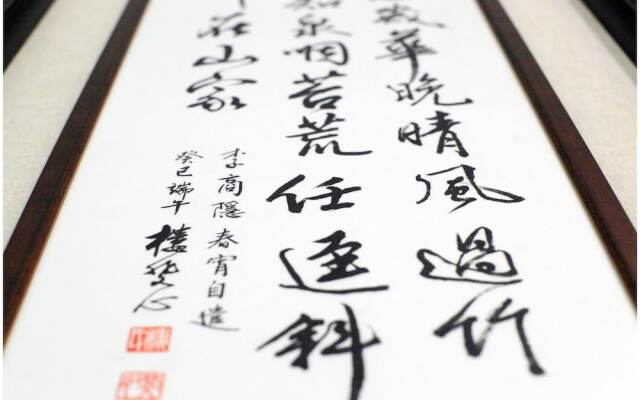 歲華晚晴風過竹
知泉咽苔荒任逕斜
在山家
李商隱春宵自遣
癸巳端午